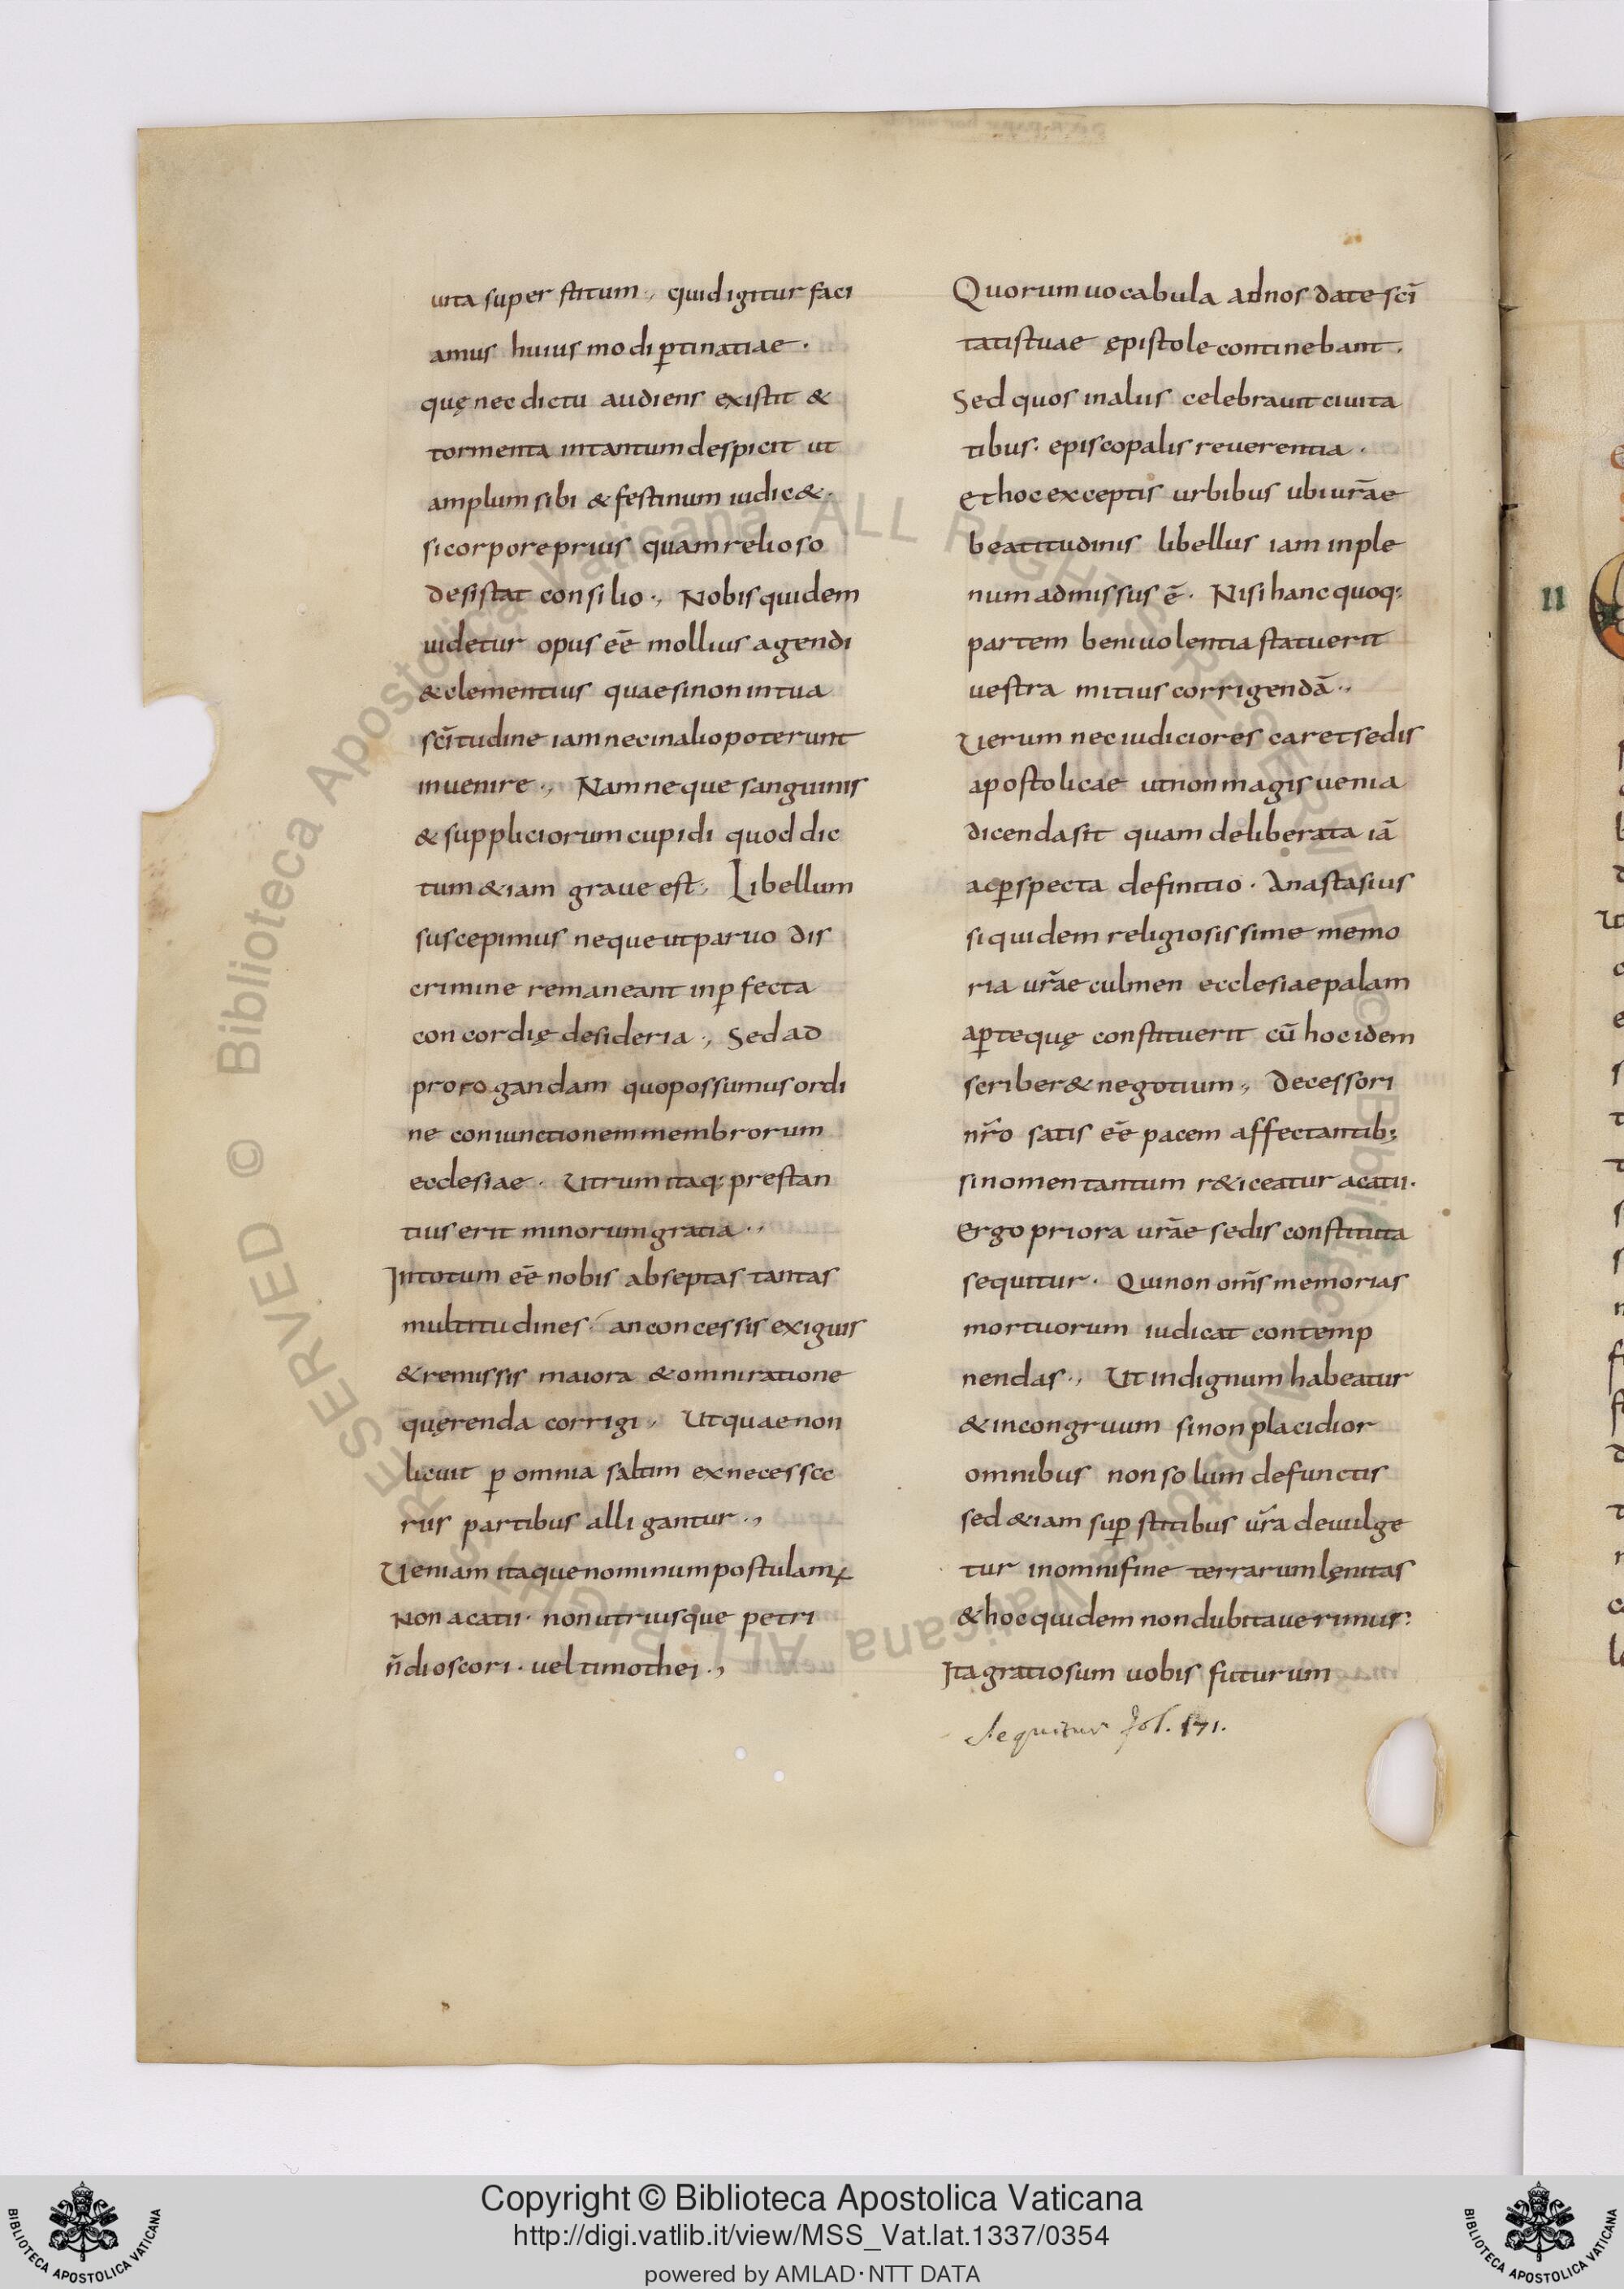 uita super stitum., quid igitur faci
amus huius modi ꝑtinatiae.
quę nec dictu audiens existit &
tormenta intantum despicit ut
amplum sibi & festinum iudic&.
si corpore prius quam relioso
desistat consilio., Nobis quidem
uidetur opus eē mollius agendi
& clementius quae sinon intua
scītudine iam nec inalio poterunt
inuenire., Nam neque sanguinis
& suppliciorum cupidi quod dic
tum &iam graue est., Libellum
suscepimus neque ut paruo dis
crimine remaneant inꝑfecta
concordię desideria., Sed ad
prorogandam quo possumus ordi
ne coniunctionem membrorum
ecclesiae. Utrum itaq; prestan
tius erit minorum gratia..
Intotum eē nobis abseptas tantas
multitudines. an concessis exiguis
& remissis maiora & omni ratione
quęrenda corrigi, Ut quae non
licuit ꝑ omnia saltim ex necessa
riis partibus alligantur.,
Ueniam itaque nominum postulam
Non acatii. non utriusque petri
n̄ dioscori. uel timothei.,
Quorum uocabula ad nos date scī
tatis tuae ępistole continebant.
Sed quos inaliis celebrauit ciuita
tibus. episcopalis reuerentia.
et hoc exceptis urbibus ubi ur̄ae
beatitudinis libellus iam inple
num admissus ē. Nisi hanc quoq;
partem beniuolentia statuerit
uestra mitius corrigendā..
Uerum nec iudiciores caret sedis
apostolicae ut non magis uenia
dicenda sit quam deliberata iā
ac ꝑspecta definitio. Anastasius
siquidem religiosissime memo
ria ur̄ae culmen ecclesiae palam
aꝑtequę constituerit cū hoc idem
scriber& negotium., decessori
nr̄o satis eē pacem affectantib;
si nomen tantum r&iceatur acatii.
Ergo priora urāe sedis constituta
sequitur. Qui non om̄s memorias
mortuorum iudicat contemp
nendas., Ut indignum habeatur
& incongruum sinon placidior
omnibus non solum defunctis
sed &iam suꝑstitibus ur̄a deuulge
tur inomni fine terrarum lęnitas
& hoc quidem non dubitauerimus:
Ita gratiosum uobis futurum
Sequitur fol. 171.
11
Copyright © Biblioteca Apostolica Vaticana
http://digi.vatlib.it/view/MSS_Vat.lat.1337/0354
powered by AMLAD·NTT DATA
BIBLIOTECA APOSTOLICA VATICANA
BIBLIOTECA APOSTOLICA VATICANA